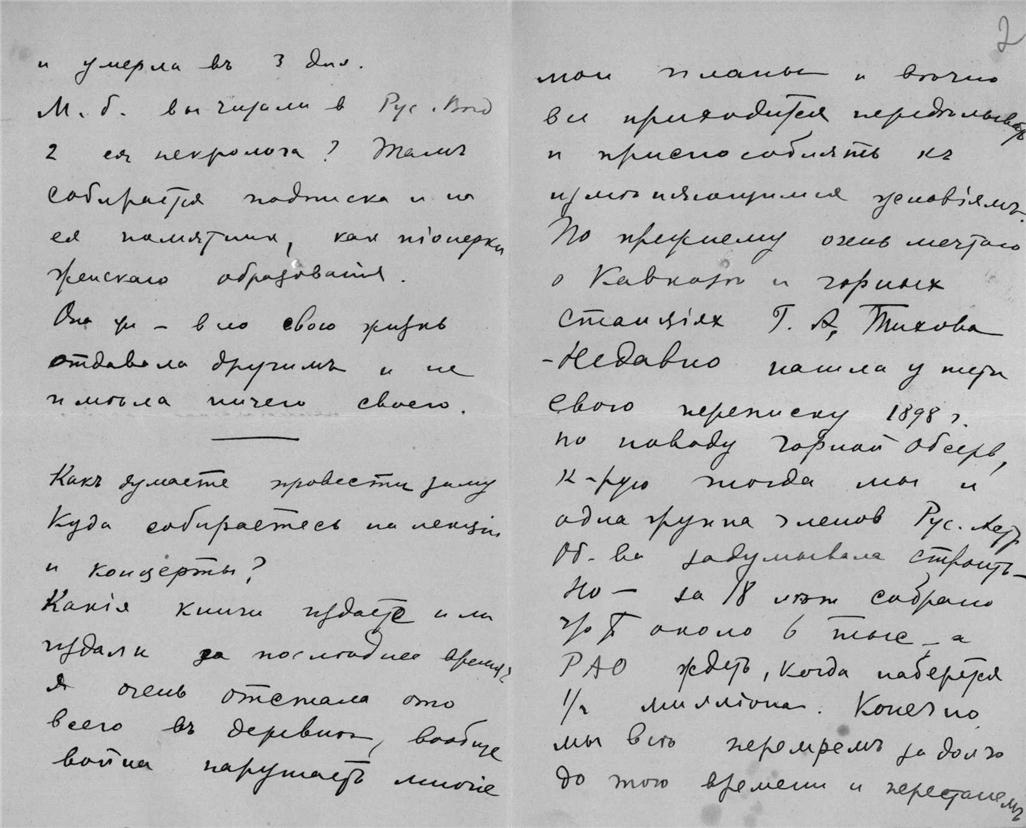 и умерла въ 3 дня.
М. б. вы читали в Рус. Вѣд
2 ея некролога? Тамъ
собирается подписка и на
ея памятник, как піонерки
женскаго образованія.
Она всю свою жизнь
отдавала другимъ и не
имѣла ничего своего.
Какъ думаете провести зиму
Куда собираетесь на лекціи
и концерты?
Какія книги издаете или
издали за последнее время?
Я очень отстала ото
всего въ деревнѣ, вообще
война нарушаетъ многіе
2
мои планы и вѣчно
все приходится передѣлывать
и приспособлять къ
измѣняющимся условіямъ.
По прежнему очень мечтаю
о Кавказѣ и горных
станціях Г. А. Тихова
- Недавно нашла у тети
свою переписку 1898 г.
по поводу горной Обсерв,
к-рую тогда мы и
одна группа членов Рус. Астр
Об-ва задумывала строить –
Но – за 18 лѣт собрано
около 6 тыс – а
РАО ждетъ, когда наберется
1/2 милліона. Конечно
мы всѣ перемремъ задолго
до того времени и перестанемъ